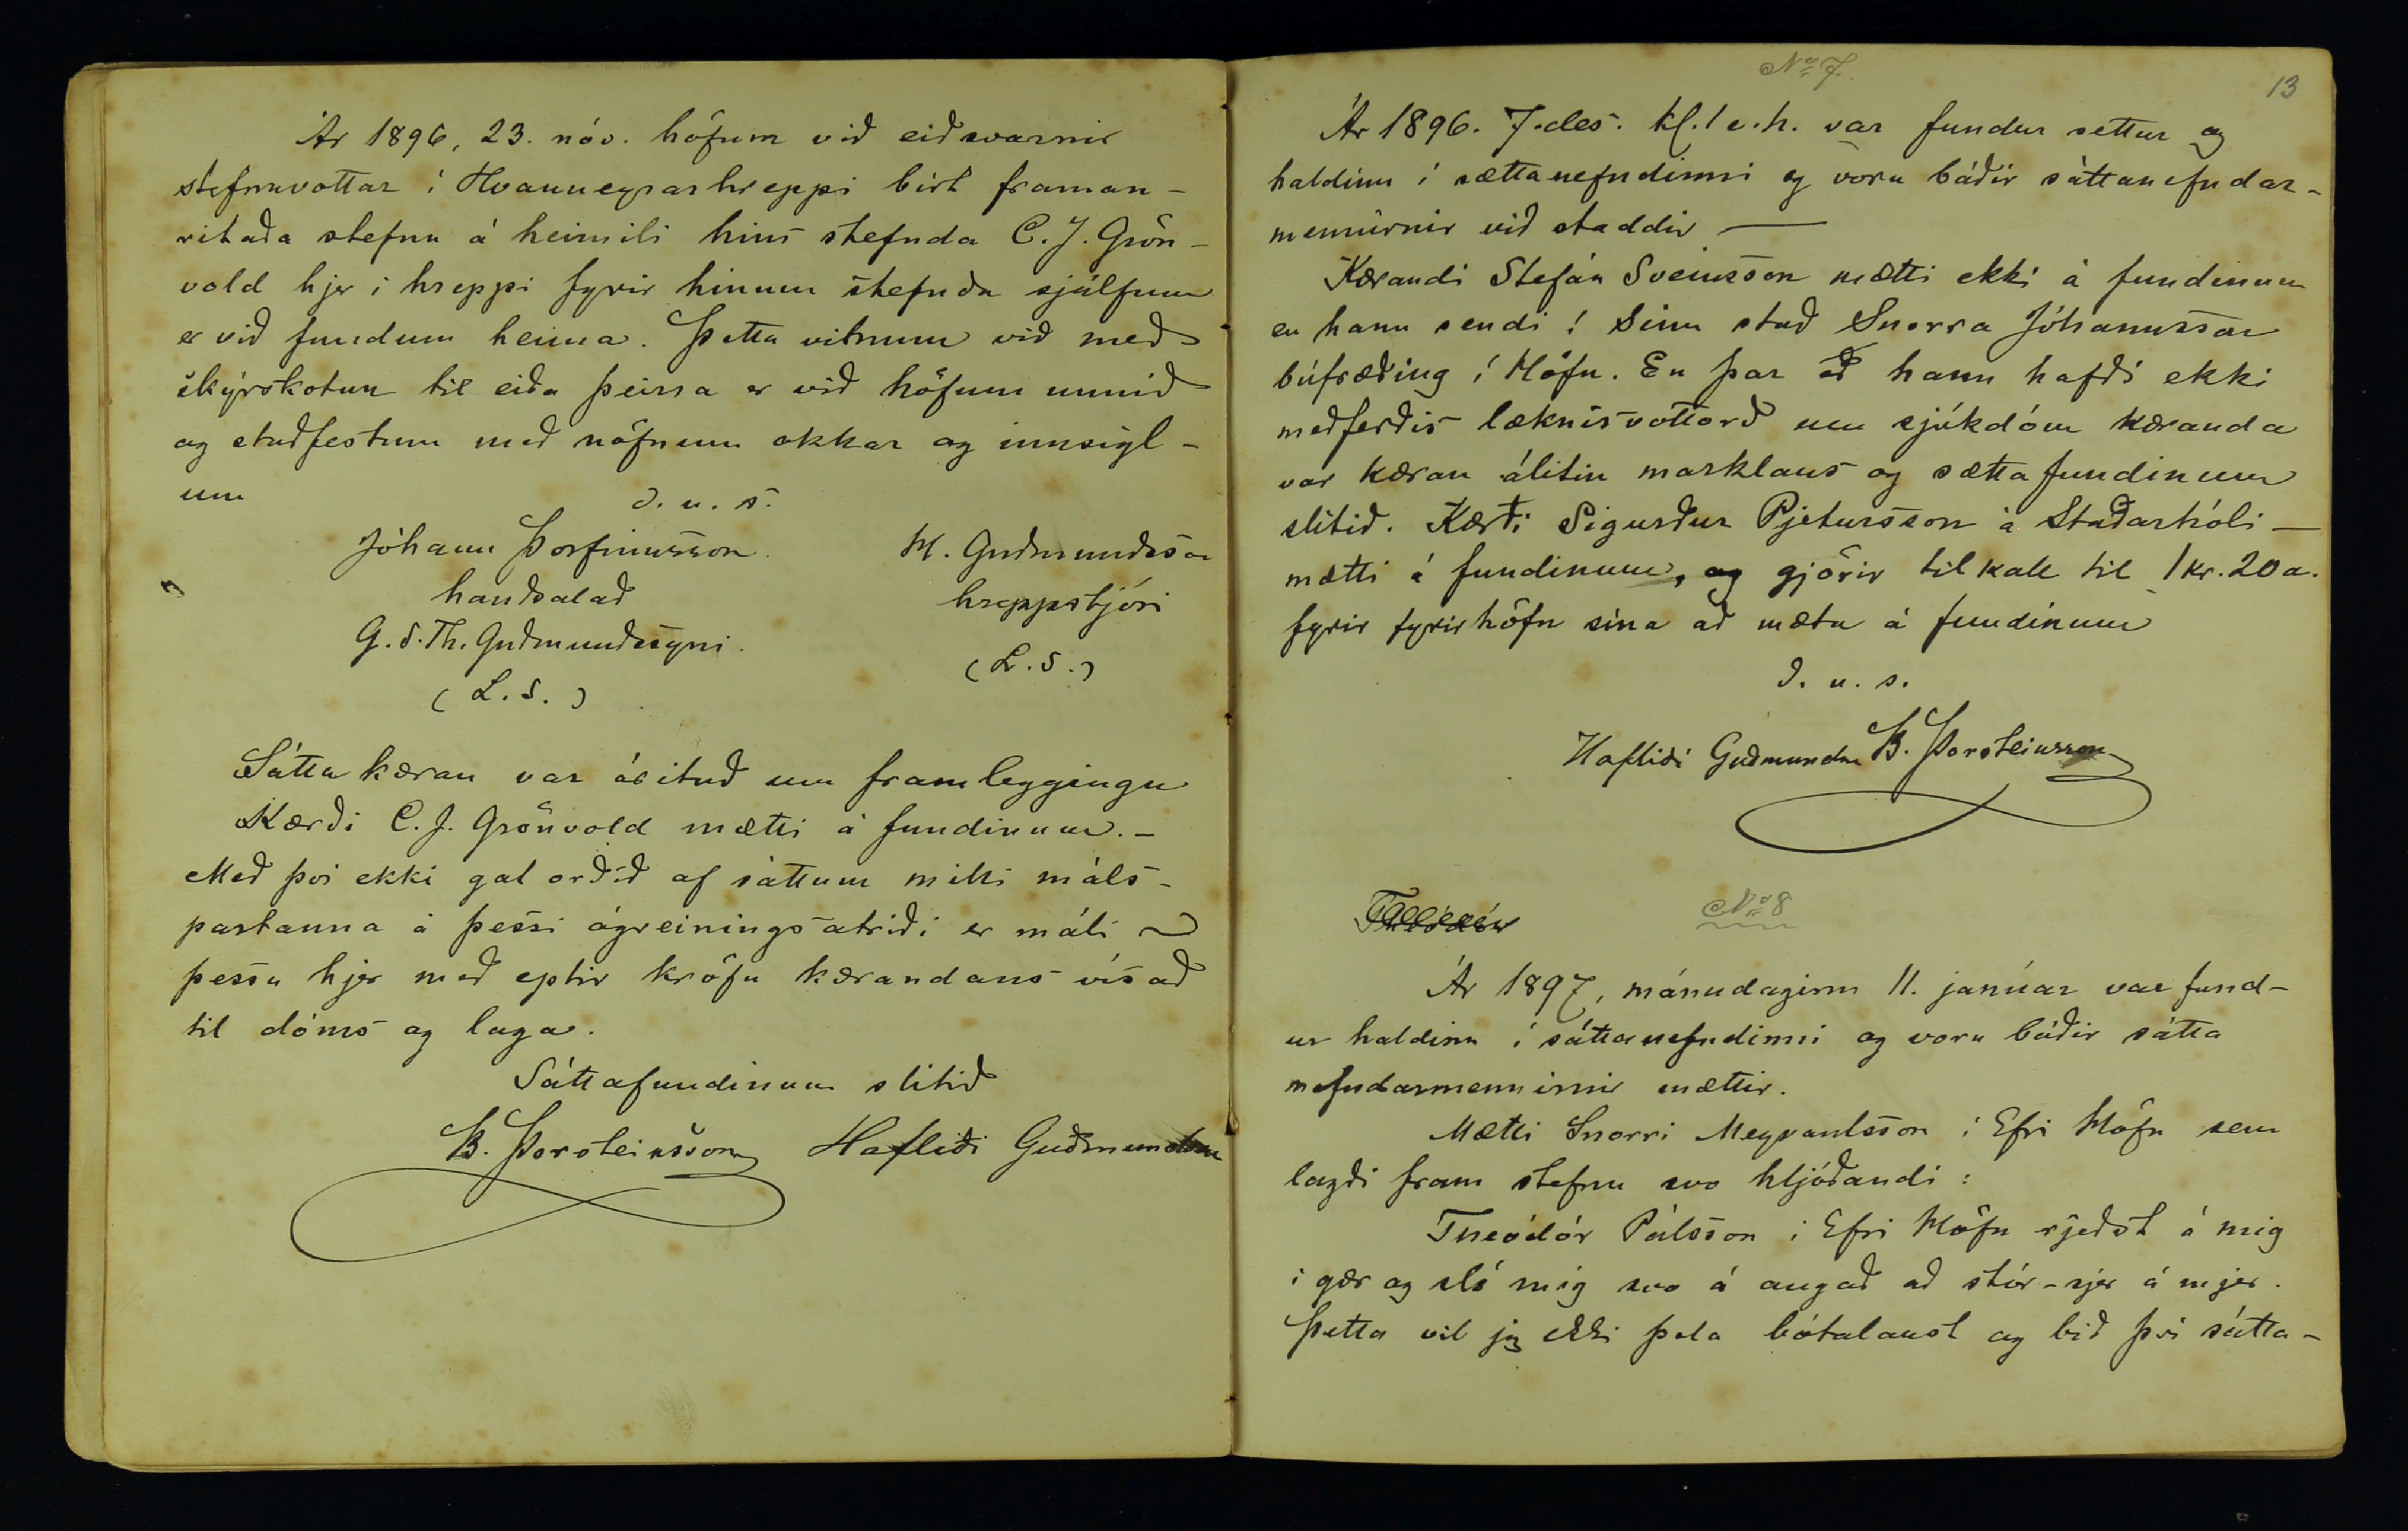 Ár 1896, 23. nóv. höfum við eiðsvarnir
stefnuvottar í Hvanneyrarhreppi birt framan-
ritaða stefnu á heimili hins stefnda C. J. Grön-
vold hjer í hreppi fyrir hinum stefnda sjálfum
er við fundum heima. Þetta vitnum við með
skýrskotun til eiða þeirra er við höfum unnið
og staðfestum með nöfnum okkar og innsigl-
um
D. u. s.
Jóhann Þorfinnsson H. Guðmundsson
handsalað hreppstjóri
G. S. Th. Guðmundssyni. (L. S.)
(L. S.)
Sáttakæran var árituð um framleggingu
Kærði C. J. Grönvold mætti á fundinum. -
Með því ekki gat orðið af sáttum milli máls-
partanna á þessi ágreiningsatriði er máli
þessu hjer með eptir kröfu kærandans vísað
til dóms og laga.
Sáttafundinum slitið
B. Þorsteinsson Hafliði Guðmundsson
No 7.
13
Ár 1896. 7. des. kl. 1 e. h. var fundur settur og
haldinn í sættanefndinni og voru báðir sáttanefndar-
mennirnir við staddir —
Kærandi Stefán Sveinsson mætti ekki á fundinum
en hann sendi í sinn stað Snorra Jóhannsson
búfræðing í Höfn. En þar að hann hafði ekki
meðferðis læknisvottorð um sjúkdóm kæranda
var kæran álitin marklaus og sættafundinum
slitið. Kærði Sigurður Pjetursson á Staðarhóli —
mætti á fundinum, og gjörir tilkall til 1 kr. 20 a.
fyrir fyrirhöfn sína að mæta á fundinum
D. u. s.
Hafliði Guðmundsn B. Þorsteinsson
No 8
Ár 1897, mánudaginn 11. janúar var fund-
ur haldinn í sáttanefndinni og voru báðir sátta
nefndarmennirnir mættir.
Mætti Snorri Meyvantsson í Efri Höfn sem
lagði fram stefnu svo hljóðandi:
Theódór Pálsson í Efri Höfn rjeðst á mig
í gær og sló mig svo á augað að stór-sjer á mjer.
Þetta vil jeg ekki þola bótalaust og bið því sátta-